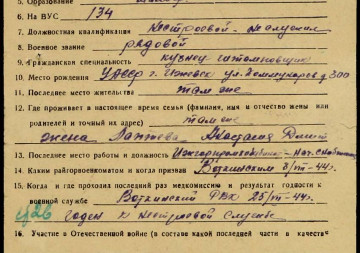 5. Образование
6. На ВУС 134
7. Должностная квалификация нестроевой
8. Военное звание рядовой
9. Гражданская специальность кузнец штамповщик
10. Место рождения УАССР г. Ижевск ул. д. 300
11. Последнее место жительства там же
12. Где проживает в настоящее время семья (фамилия, имя и отчество жены или
родителей и точный их адрес) там же
жена Анастасия
13. Последнее место работы и должность
14. Каким райгорвоенкоматом и когда призван Воткинским 8/III-44 г.
15. Когда и где проходил последний раз медкомиссию и результат годности к
военной службе Воткинский РВК 25/III-44 г.
годен к нестроевой службе
16. Участие в Отечественной войне (в составе какой последней части в качестве